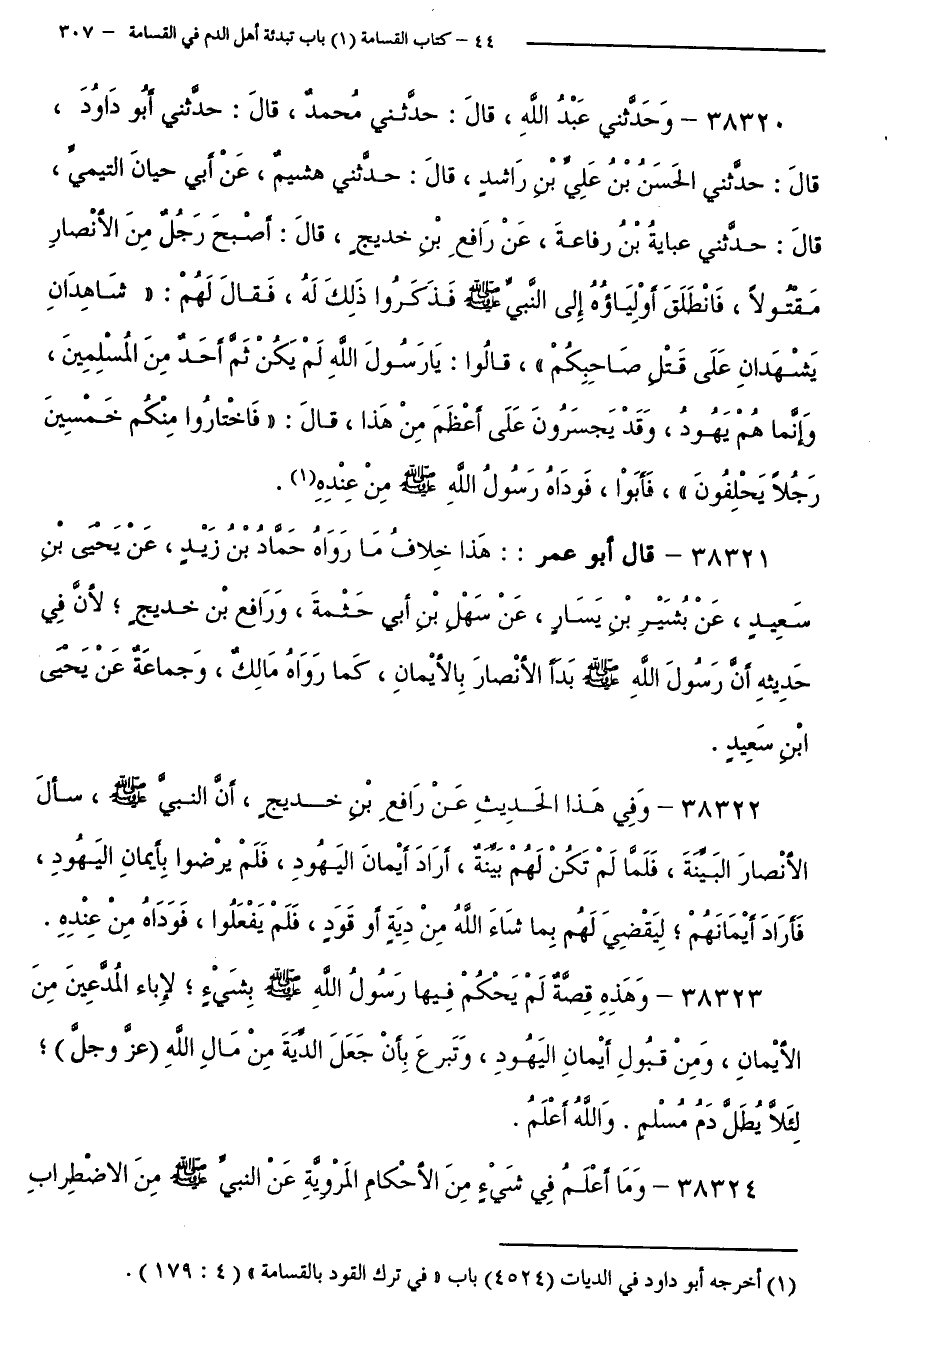 ٤٤ – كتاب القسامة (١) باب تبدئة أهل الدم في القسامة – ٣٠٧
٣٨٣٢٠ – وَحَدَّثني عَبْدُ اللَّهِ ، قالَ : حدَّثني مُحمدٌ ، قالَ : حدَّثني أَبُو دَاوُدَ ،
قالَ : حدَّثني الحَسَنُ بْنُ عَلِيِّ بْنِ رَاشدٍ ، قالَ : حدَّثني هشيمٌ ، عَنْ أَبي حيانَ التيميِّ ،
قالَ : حدَّثني عبايةُ بْنُ رفاعةَ ، عَنْ رَافعِ بْنِ خديجٍ ، قالَ : أَصْبحَ رَجُلٌ مِنَ الأَنْصارِ
مَقْتُولاً ، فَانْطَلَقَ أَوْلِيَاؤُهُ إِلى النَّبيِّ ﷺ فَذَكَرُوا ذَلِكَ لَهُ ، فَقالَ لَهُمْ : « شَاهِدَانِ
يَشْهَدانِ عَلَى قَتْلِ صَاحِبِكُمْ » ، قالُوا : يَارَسُولَ اللَّهِ لَمْ يَكُنْ ثَمَّ أَحَدٌ مِنَ المُسْلِمِينَ ،
وَإِنَّما هُمْ يَهُودُ ، وَقَدْ يَجسَرُونَ عَلَى أَعْظَمَ مِنْ هَذا ، قالَ : « فَاخْتارُوا مِنْكُم خَمْسِينَ
رَجُلاً يَحْلِفُونَ » ، فَأَبَوْا ، فَودَاهُ رَسُولُ اللَّهِ ﷺ مِنْ عِنْدِهِ(١) .
٣٨٣٢١ – قال أبو عمر : : هَذا خِلافُ مَا رَوَاهُ حَمَّادُ بْنُ زَيْدٍ ، عَنْ يَحْيَى بْنِ
سَعِيدٍ ، عَنْ بُشَيْرِ بْنِ يَسَارٍ ، عَنْ سَهْلِ بْنِ أَبي حَثْمةَ ، وَرَافعِ بْنِ خديجٍ ؛ لأَنَّ فِي
حَدِيثِهِ أَنَّ رَسُولَ اللَّهِ ﷺ بَدَأَ الأَنْصارَ بِالأَيْمانِ ، كَما رَوَاهُ مَالِكٌ ، وَجماعَةٌ عَنْ يَحْيَى
ابْنِ سَعِيدٍ .
٣٨٣٢٢ – وَفِي هَذا الحَدِيثِ عَنْ رَافعِ بْنِ خديجٍ ، أَنَّ النبيَّ ﷺ ، سأَلَ
الأَنْصارَ البَيِّنَةَ ، فَلَمَّا لَمْ تَكُنْ لَهُمْ بَيِّنَةٌ ، أَرَادَ أَيْمانَ اليَهُودِ ، فَلَمْ يرْضوا بِأَيمانِ اليَهُودِ ،
فَأَرَادَ أَيْمَانَهُمْ ؛ لِيَقْضِيَ لَهُم بِما شَاءَ اللَّهُ مِنْ دِيَةٍ أَو قَودٍ ، فَلَمْ يَفْعَلُوا ، فَودَاهُ مِنْ عِنْدِهِ .
٣٨٣٢٣ – وَهَذِهِ قِصَّةٌ لَمْ يَحْكُمْ فِيها رَسُولُ اللَّهِ ﷺ بِشَيْءٍ ؛ لإِباء المُدَّعِينَ مِنَ
الأَيْمانِ ، وَمِنْ قبُولِ أَيْمانِ اليَهُودِ ، وَتَبرعَ بِأَنْ جَعَلَ الدِّيَةَ مِنْ مَالِ اللَّهِ (عزَّ وجلَّ) ؛
لِئَلاَّ يُطَلَّ دَمُ مُسْلمٍ . وَاللَّهُ أَعْلَمُ .
٣٨٣٢٤ – وَمَا أَعْلَمُ فِي شَيْءٍ مِنَ الأَحْكامِ المَرْوِيَّةِ عَنْ النبيِّ ﷺ مِنَ الاضْطِرابِ
(١) أخرجه أبو داود في الديات (٤٥٢٤) باب « في ترك القود بالقسامة » (٤ : ١٧٩) .